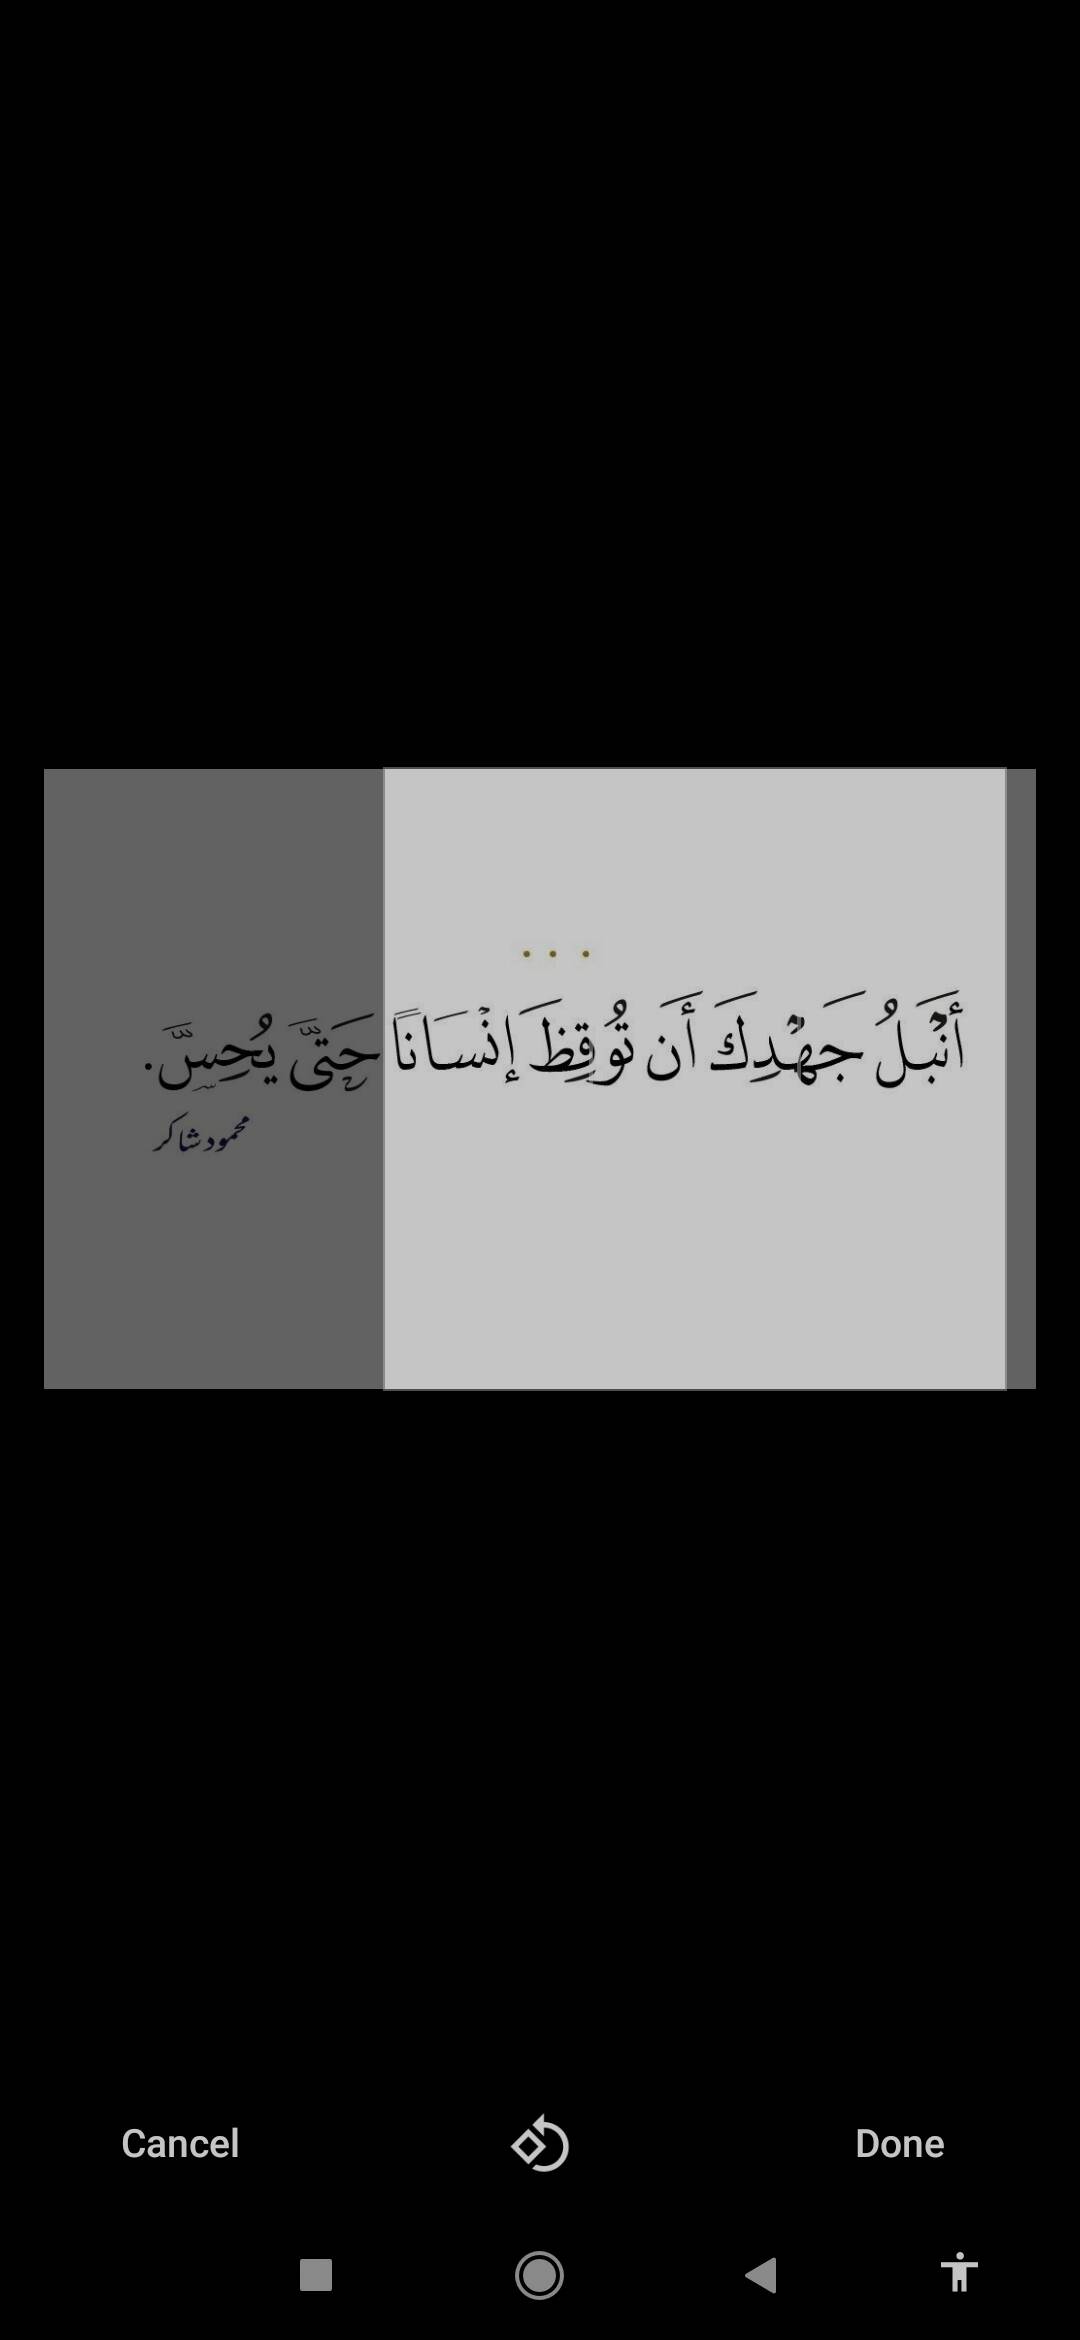 أَنْبَلُ جَهْدِكَ أَن تُوقِظَ إِنْسَانًا حَتَّى يُحِسَّ.
محمود شاكر
Cancel
Done